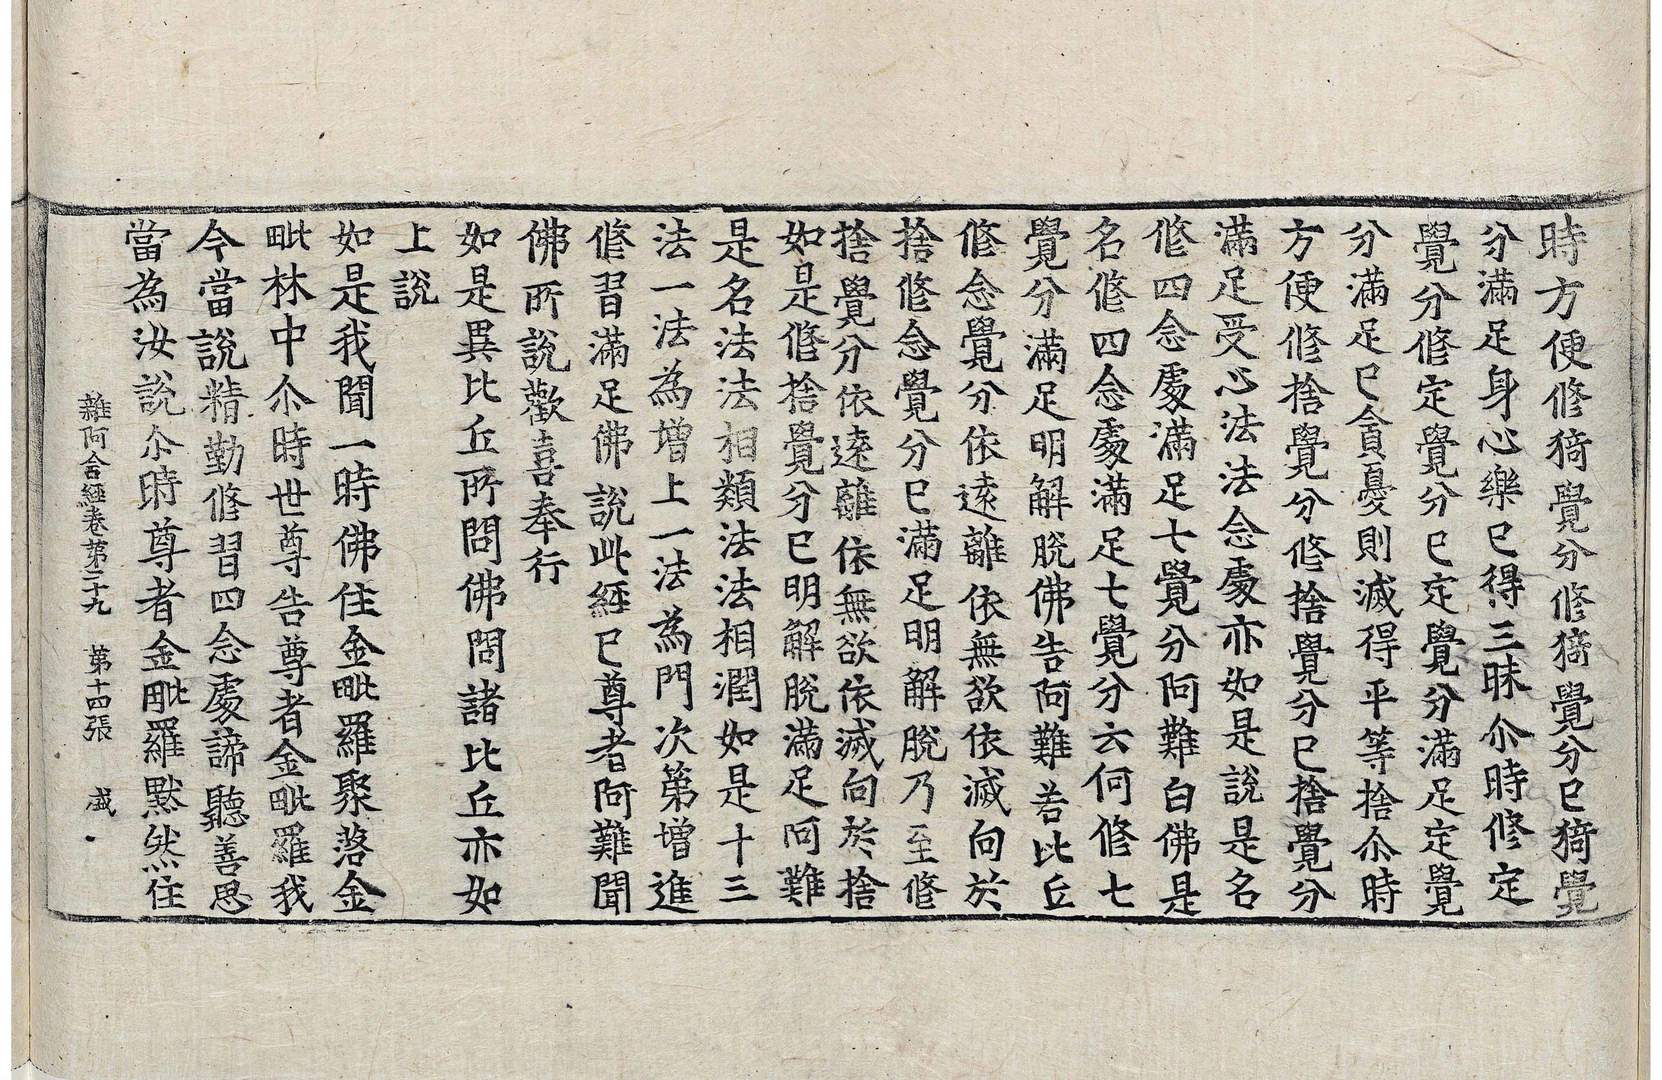 時方便修猗覺分修猗覺分已猗覺
分滿足身心樂已得三昧尒時修定
覺分修定覺分已定覺分滿足定覺
分滿足已貪憂則滅得平等捨尒時
方便修捨覺分修捨覺分已捨覺分
滿足受心法法念處亦如是說是名
修四念處滿足七覺分阿難白佛是
名修四念處滿足七覺分云何修七
覺分滿足明解脫佛告阿難若比丘
修念覺分依遠離依無欲依滅向於
捨修念覺分已滿足明解脫乃至修
捨覺分依遠離依無欲依滅向於捨
如是修捨覺分已明解脫滿足阿難
是名法法相類法法相潤如是十三
法一法為增上一法為門次第增進
修習滿足佛說此經已尊者阿難聞
佛所說歡喜奉行
如是異比丘所問佛問諸比丘亦如
上說
如是我聞一時佛住金毗羅聚落金
毗林中尒時世尊告尊者金毗羅我
今當說精勤修習四念處諦聽善思
當為汝說尒時尊者金毗羅默然住
雜阿含經卷第二十九 第十四張 盛